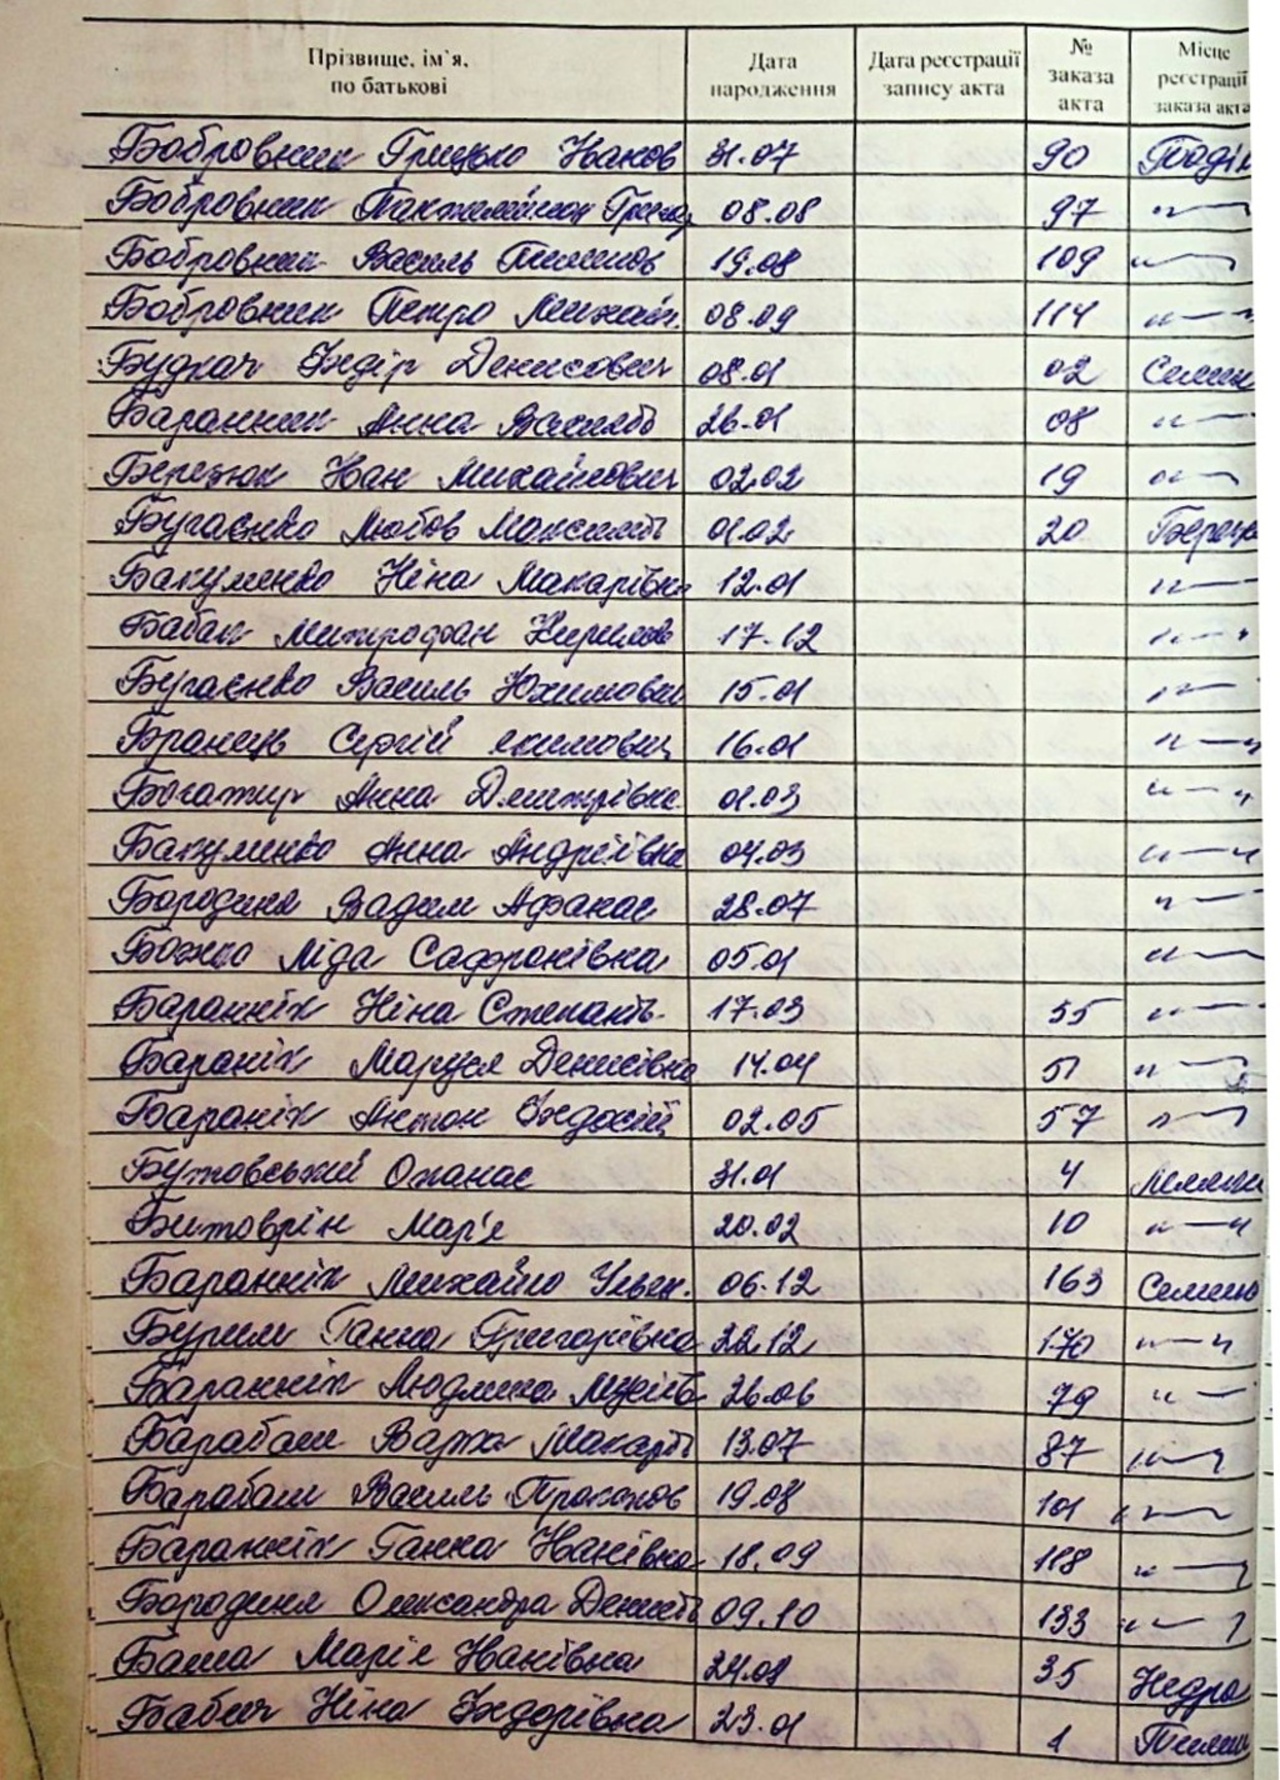 Прізвище, ім`я, по батькові Дата народження Дата реєстрації запису акта № заказа акта Місце реєстрації заказа акта
Бобровник Грицько Іванов 31.07 90 Подін
Бобровник Пантелеймон Григор 08.08 97 -"-
Бобровник Василь Пилипов 19.08 109 -"-
Бобровник Петро Михайл. 08.09 114 -"-
Будкач Федір Денисович 08.01 02 Семен
Баранник Анна Василів 26.01 08 -"-
Березюк Іван Михайлович 02.02 19 -"-
Бугаєнко Любов Максимів 01.02 20 Берез
Бакуменко Ніна Макарівна 12.01 -"-
Бабак Митрофан Кирилов 17.12 -"-
Бугаєнко Василь Юхимович 15.01 -"-
Бранець Сергій Якимович 16.01 -"-
Богатир Анна Дмитрівна 01.03 -"-
Бакуменко Анна Андріївна 04.03 -"-
Бородиня Вадим Афанас 28.07 -"-
Божко Ліда Сафронівна 05.01 -"-
Бараннік Ніна Степанів 17.03 55 -"-
Баранік Маруся Денисівна 14.04 51 -"-
Баранік Антон Федосій 02.05 57 -"-
Бутовський Опанас 31.01 4
Битоврін Мар'я 20.02 10 -"-
Бараннік Михайло Ульян. 06.12 163 Семено
Бурим Ганна Григорівна 22.12 170 -"-
Бараннік Людмила Мусіїв 26.06 79 -"-
Барабаш Варка Макарів 13.07 87 -"-
Барабаш Василь Прокопов 19.08 101 -"-
Бараннік Ганна Іванівна 18.09 118 -"-
Бородиня Олександра Денисів 09.10 133 -"-
Баша Марія Іванівна 24.08 35 Недра
Бабич Ніна Федорівна 23.01 1